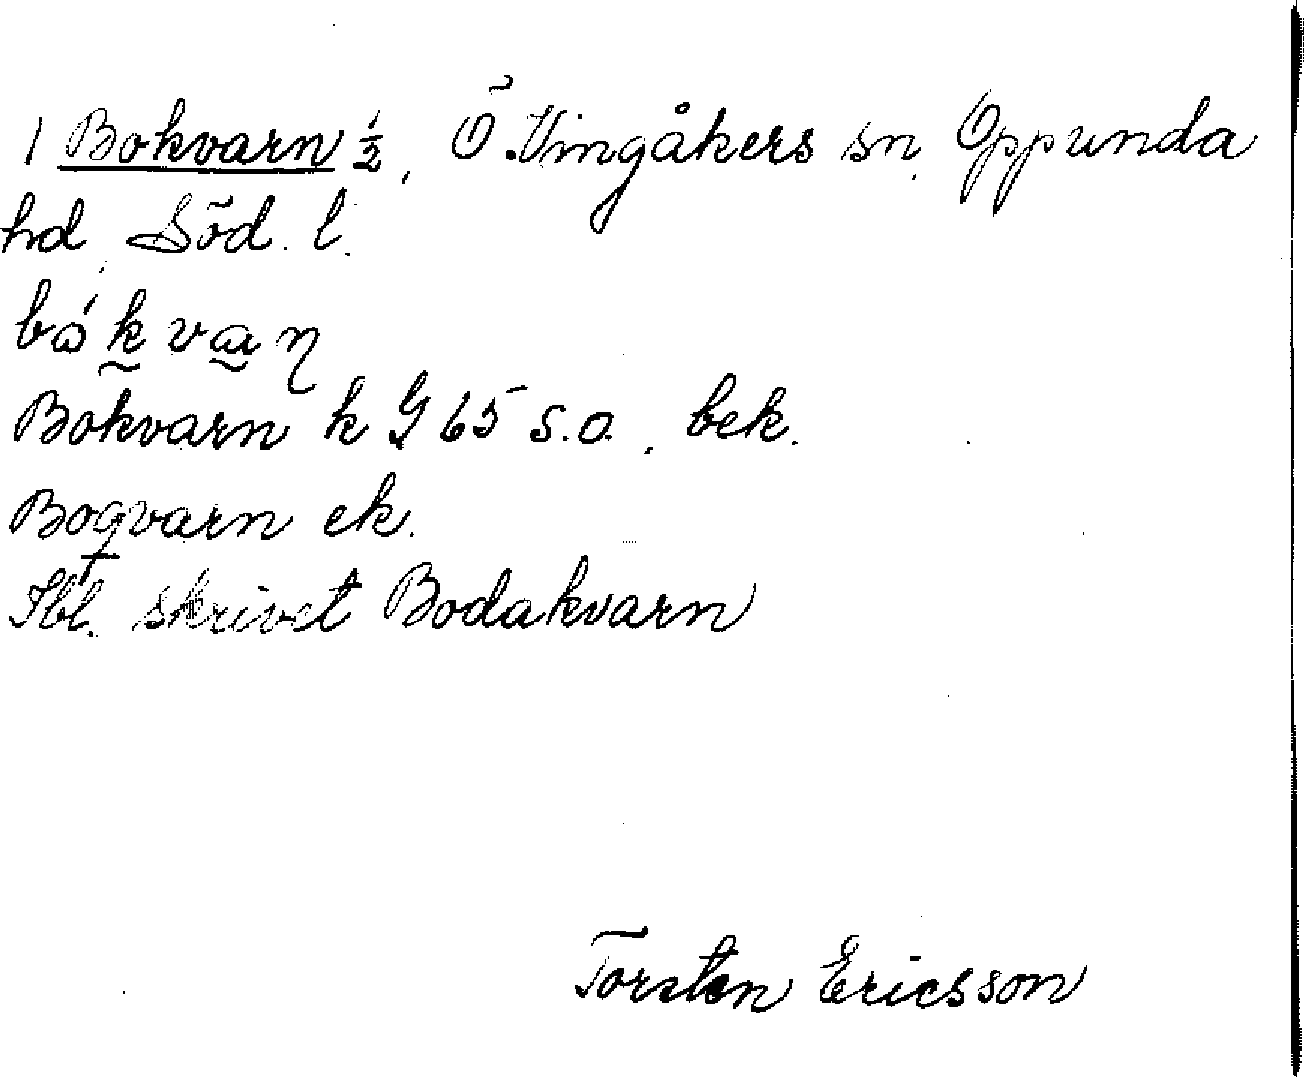 1 Bokvarn ½, Ö. Vingåkers sn, Oppunda
hd, Söd. l.
Bokvarn k G 65 s.o., bek.
Boqvarn ek.
Ibl. skrivet Bodakvarn
Torsten Ericsson